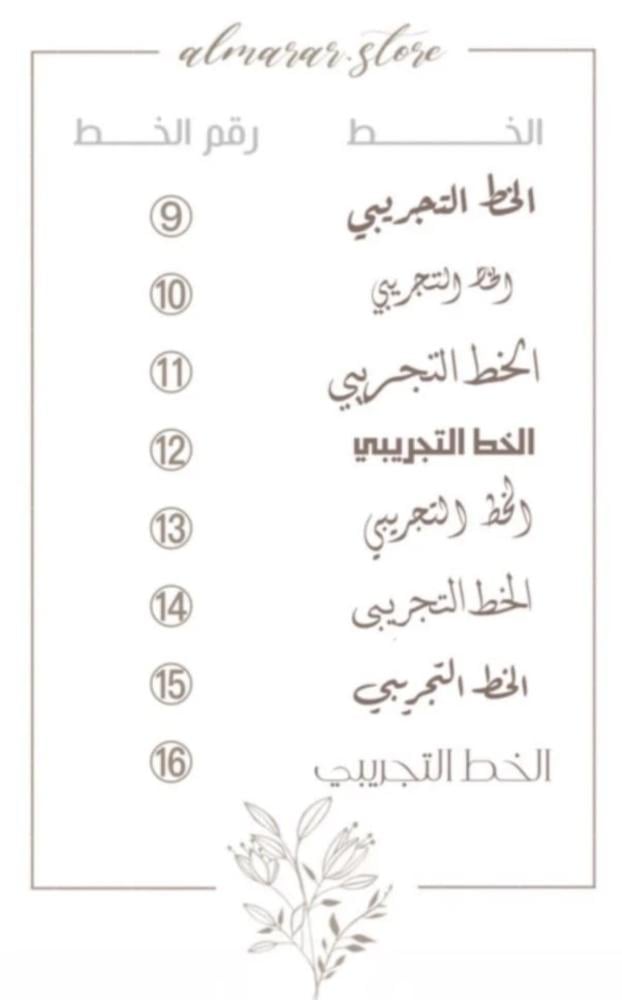 almarar.store
الخـــــــط رقم الخـــط
الخط التجريبي 9
الخط التجريبي 10
الخط التجريبي 11
الخط التجريبي 12
الخط التجريبي 13
الخط التجريبى 14
الخط التجريبي 15
الخط التجريبي 16